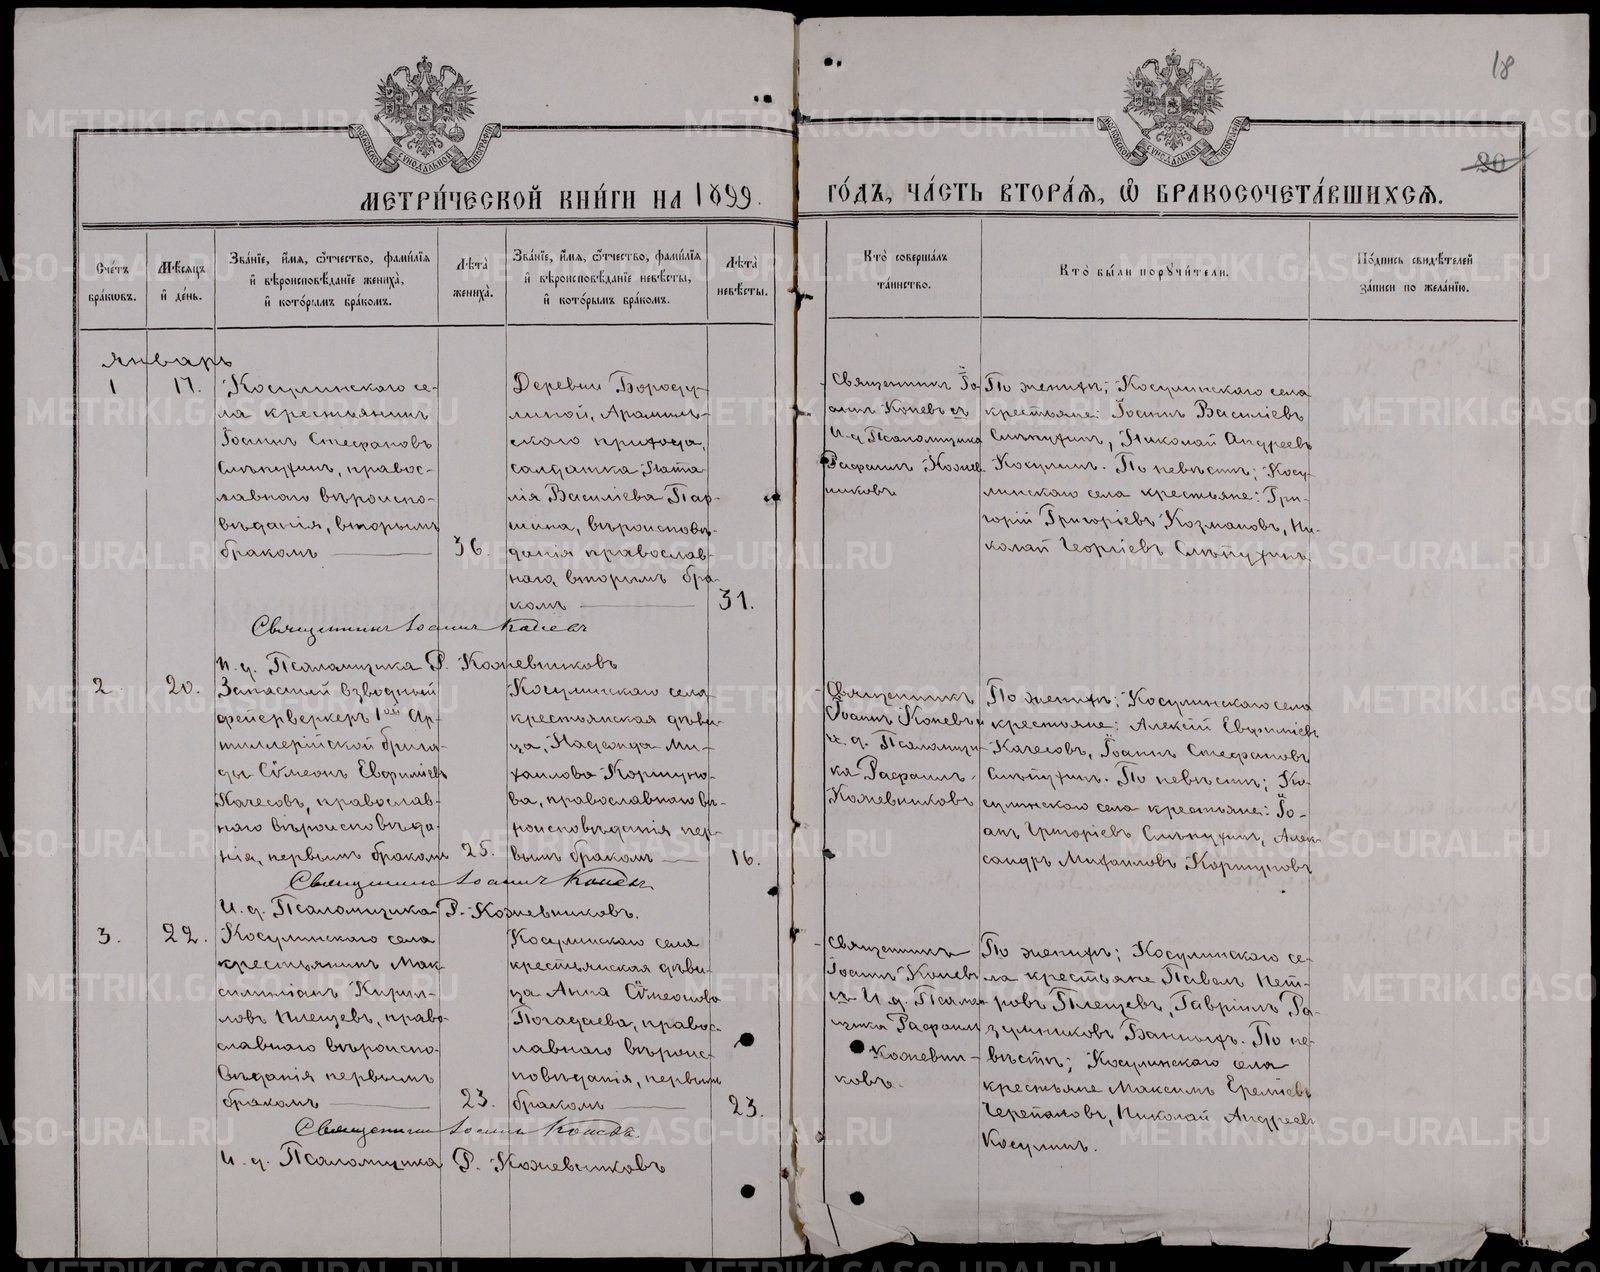 18
20
МЕТРИ́ЧЕСКОЙ КНИ́ГИ НА 1899. ГО́ДЪ, ЧА́СТЬ ВТОРА́Я, Ѽ БРАКОСОЧЕТА́ВШИХСЯ.
Сче́тъ бра́кѡвъ.
Мѣ́сяцъ и҆ де́нь.
Зва́нїе, и҆́мя, ѻ҆́тчество, фами́лїя
и҆ вѣроисповѣ́данїе жениха̀,
и҆ кото́рымъ бра́комъ.
Лѣта̀ жениха̀.
Зва́нїе, и҆́мя, ѻ҆́тчество, фами́лїя
и҆ вѣроисповѣ́данїе невѣ́сты,
и҆ кото́рымъ бра́комъ.
Лѣта̀ невѣ́сты.
Кто̀ соверша́лъ
та́инство.
Кто̀ бы́ли поручи́тели.
По́дпись свидѣ́телей
за́писи по жела́нїю.
Январь
1
17.
Косулинскаго се-
ла крестьянинъ
Іоаннъ Стефановъ
Слѣпухинъ, правос-
лавнаго вѣроиспо-
вѣданія, вторымъ
бракомъ
36.
Деревни Бороду-
линой, Арамиль-
скаго прихода,
солдатка Ната-
лія Василіева Пар-
шина, вѣроисповѣ-
данія православ-
наго, вторымъ бра-
комъ
31.
Священникъ Іо-
аннъ Коневъ съ
И. д. Псаломщика
Рафаилъ Кожев-
никовъ
По женихѣ; Косулинскаго села
крестьяне: Іоаннъ Василіевъ
Слѣпухинъ, Николай Андреевъ
Косулинъ. По невѣстѣ; Косу-
линскаго села крестьяне: Гри-
горій Григоріевъ Козмановъ, Ни-
колай Георгіевъ Слѣпухинъ
Священникъ Іоаннъ Коневъ
И. д. Псаломщика Р. Кожевниковъ
2
20.
Запасный взводный
фейерверкеръ 1ой Ар-
тиллерійской брига-
ды Сѷмеонъ Евфиміевъ
Качесовъ, православ-
наго вѣроисповѣда-
нія, первымъ бракомъ
25.
Косулинскаго села
крестьянская дѣви-
ца, Надежда Ми-
хаилова Коршуно-
ва, православнаго вѣ-
роисповѣданія пер-
вымъ бракомъ
16.
Священникъ
Іоаннъ Коневъ и
и. д. Псаломщи-
ка Рафаилъ
Кожевниковъ
По женихѣ; Косулинскаго села
крестьяне: Алексій Евфиміевъ
Качесовъ, Іоаннъ Стефановъ
Слѣпухинъ. По невѣстѣ; Ко-
сулинскаго села крестьяне: Іо-
аннъ Григоріевъ Слѣпухинъ, Алек-
сандръ Михаиловъ Коршуновъ
Священникъ Іоаннъ Коневъ
И. д. Псаломщика Р. Кожевниковъ.
3.
22.
Косулинскаго села
крестьянинъ Мак-
симиліанъ Кирил-
ловъ Плещевъ, право-
славнаго вѣроиспо-
вѣданія первымъ
бракомъ
23.
Косулинскаго села
крестьянская дѣви-
ца Анна Сѷмеонова
Погадаева, правос-
лавнаго вѣроис-
повѣданія, первымъ
бракомъ
23.
Священникъ
Іоаннъ Коневъ
и И. д. Псалом-
щика Рафаилъ
Кожевни-
ковъ.
По женихѣ; Косулинскаго се-
ла крестьяне Павелъ Пет-
ровъ Плещевъ, Гавріилъ Ра-
По не-
вѣстѣ; Косулинскаго села
крестьяне Максимъ Ереміевъ
Черепановъ, Николай Андреевъ
Косулинъ.
Священникъ Іоаннъ Коневъ.
И. д. Псаломщика Р. Кожевниковъ
METRIKI.GASO-URAL.RU